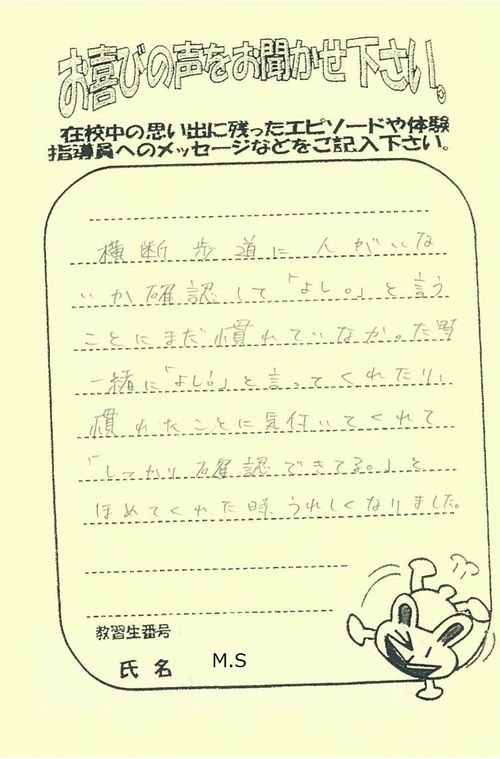 お喜びの声をお聞かせ下さい。
在校中の思い出に残ったエピソードや体験
指導員へのメッセージなどをご記入下さい。
横断歩道に人がいな
いか確認して「よし。」と言う
ことにまだ慣れていなかった時
一緒に「よし!」と言ってくれたり、
慣れたことに気付いてくれて
「しっかり確認できてる。」と
ほめてくれた時、うれしくなりました。
教習生番号
氏名 M.S